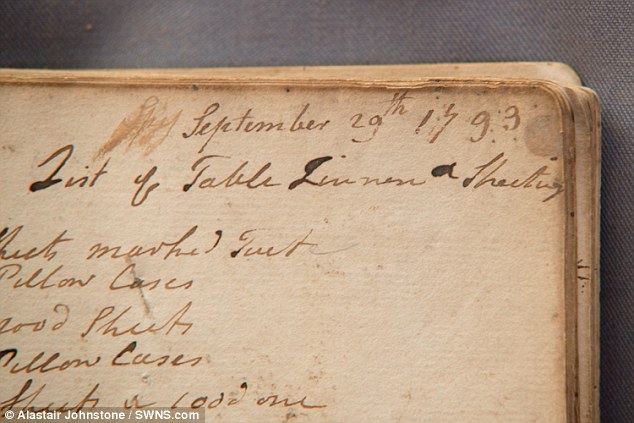 September 29th 1793
List of Table Linnen & Sheeting
Sheets marked
Pillow Cases
good Sheets
Pillow Cases
Sheets & 1 odd one
© Alastair Johnstone / SWNS.com